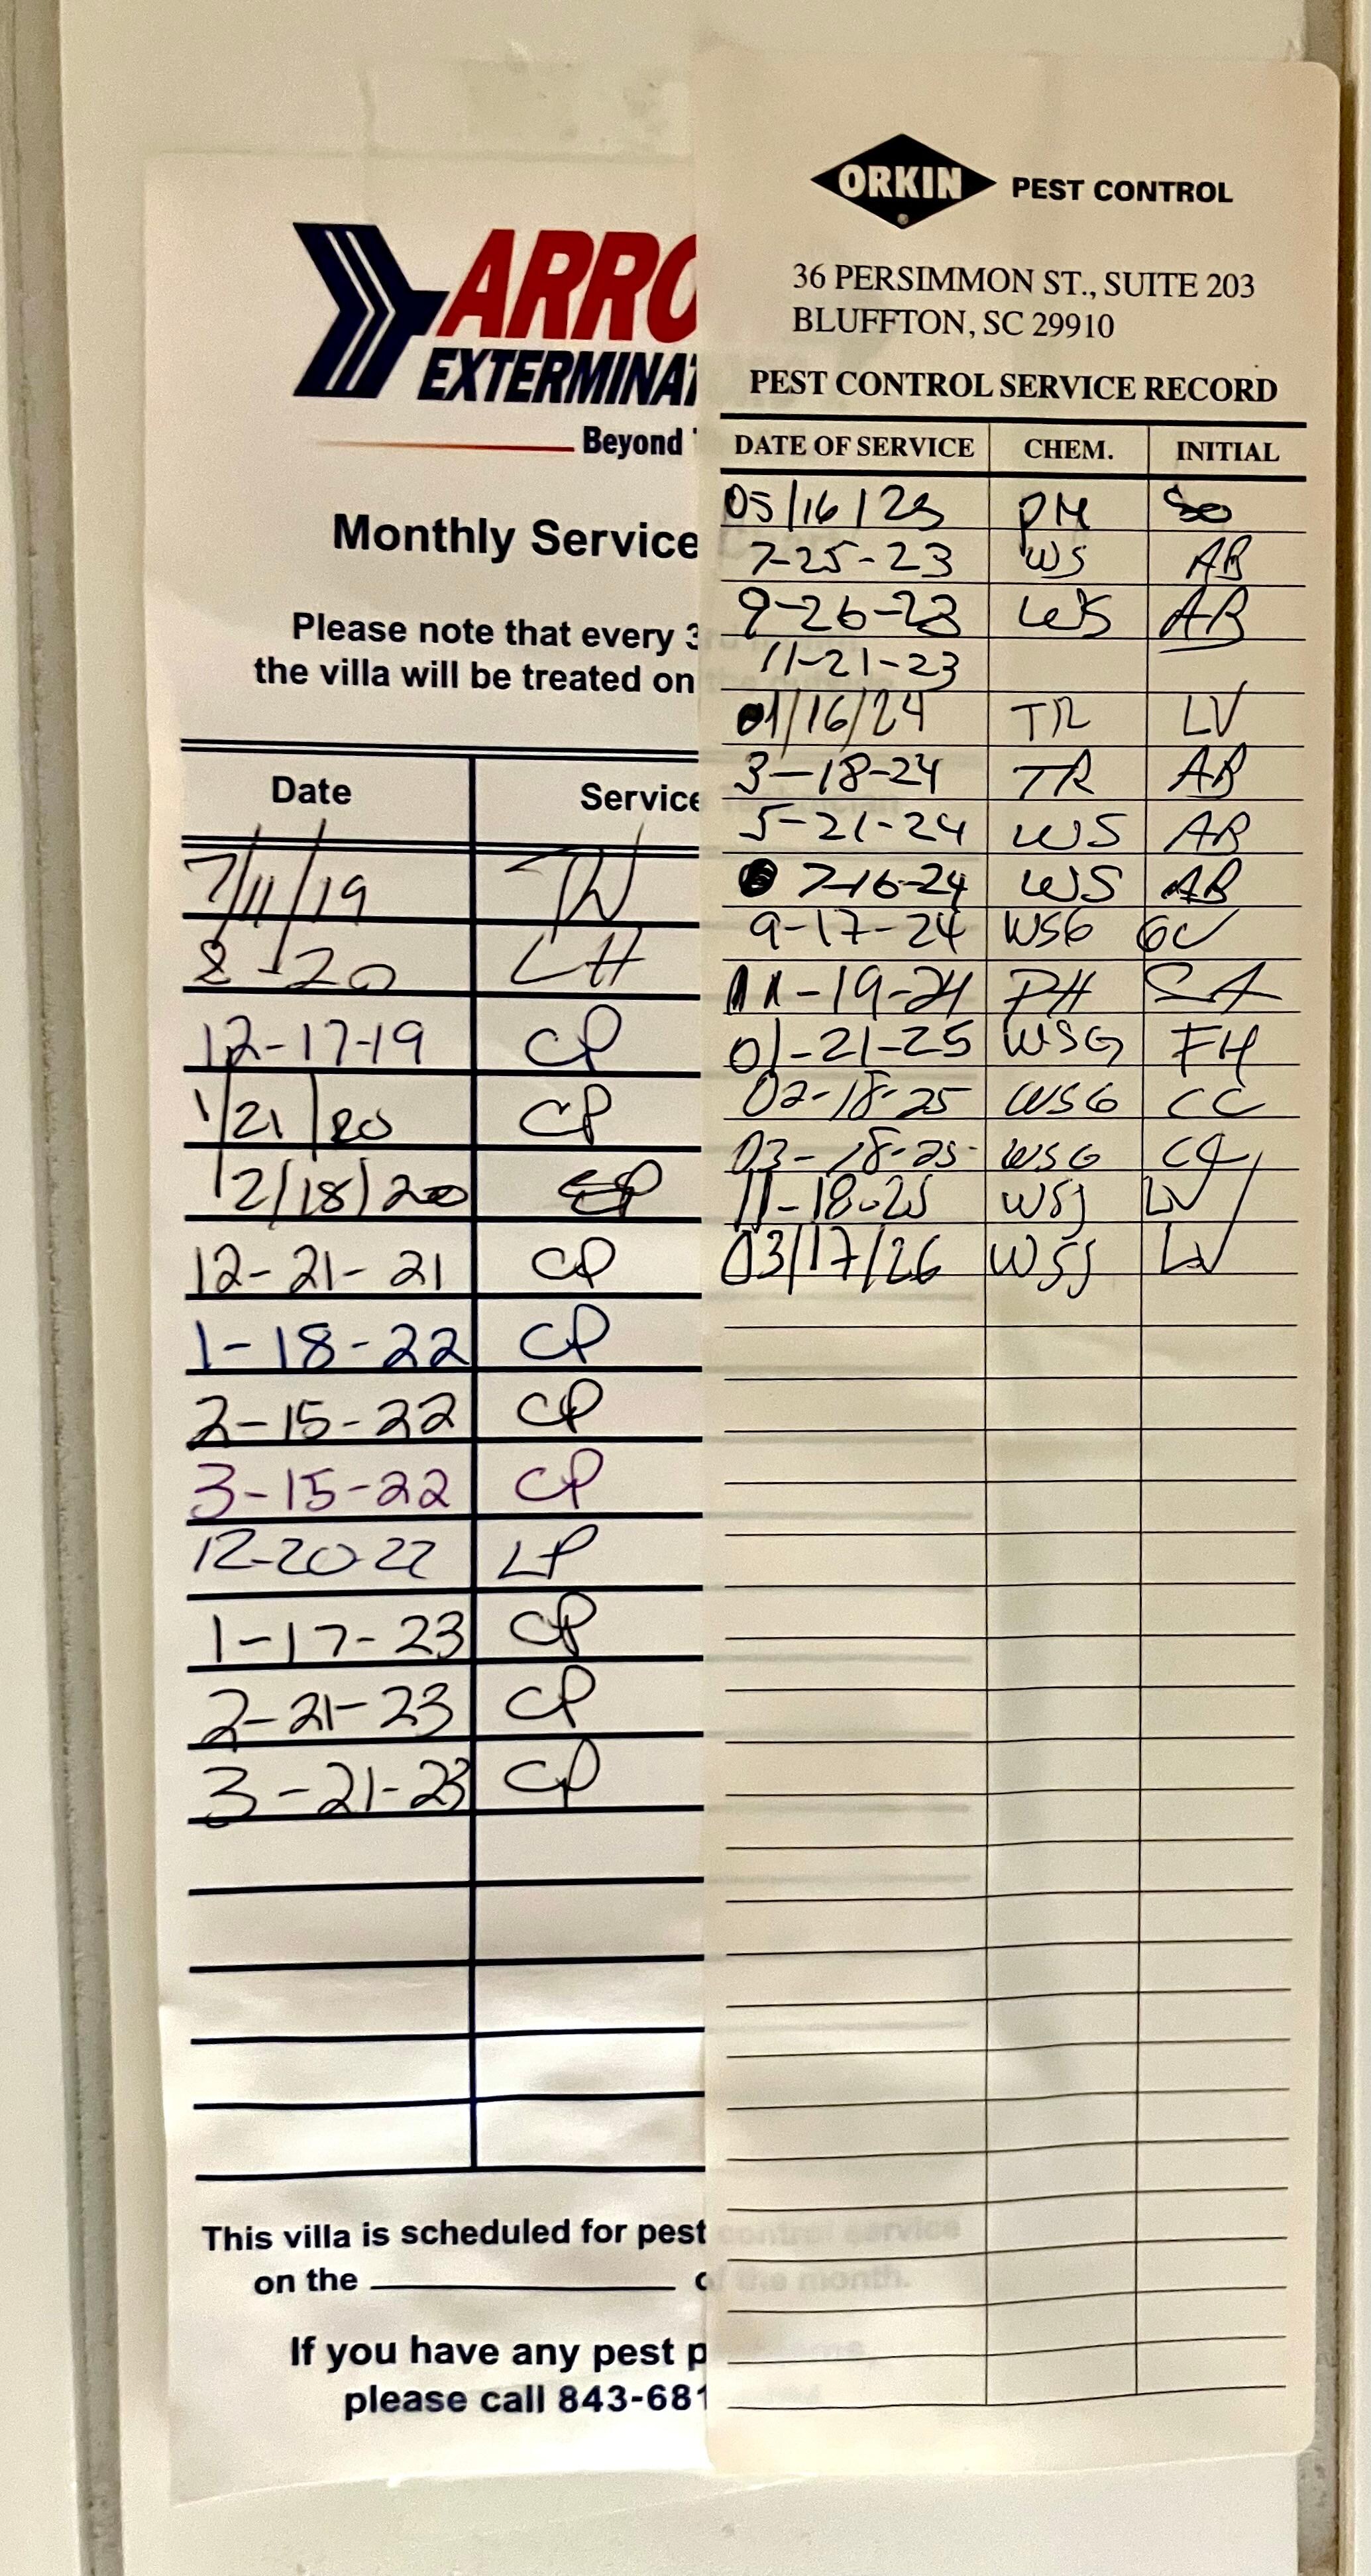 ARRO
EXTERMINAT
Beyond
Monthly Service
Please note that every 3
the villa will be treated on
Date Service
7/11/19 TW
8-20 LH
12-17-19 CP
1/21/20 CP
12/18/20 CP
12-21-21 CP
1-18-22 CP
2-15-22 CP
3-15-22 CP
12-20-22 LP
1-17-23 CP
2-21-23 CP
3-21-23 CP
This villa is scheduled for pest control service
on the ____ of the month.
If you have any pest p
please call 843-681
ORKIN PEST CONTROL
36 PERSIMMON ST., SUITE 203
BLUFFTON, SC 29910
PEST CONTROL SERVICE RECORD
DATE OF SERVICE CHEM. INITIAL
05/16/23 PH
7-25-23 WS AB
9-26-23 WS AB
11-21-23
01/16/24 TR LV
3-18-24 TR AB
5-21-24 WS AB
7-16-24 WS AB
9-17-24 WSG GC
11-19-24 PH SA
01-21-25 WSG FH
02-18-25 WSG CC
03-18-25 WSG CC
11-18-25 WSJ LV
03/17/26 WSJ LV